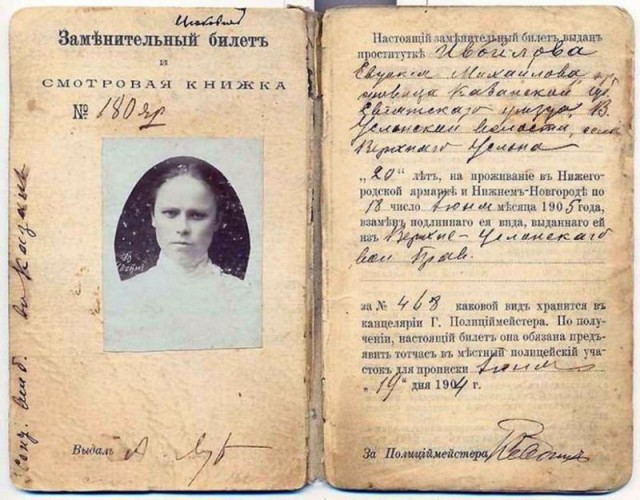 Замѣнительный билетъ
и
СМОТРОВАЯ КНИЖКА
№ 180 яр
Выдалъ
Настоящій замѣнительный билетъ выданъ
проституткѣ Ивойлова
Евдокія Михайлова
Казанской
уѣзда, В.
Услонской волости, села
Верхняго Услона
„20“ лѣтъ, на проживаніе въ Нижего-
родской армаркѣ и Нижнемъ-Новгородѣ по
18 число Іюня мѣсяца 1905 года,
взамѣнъ подлиннаго ея вида, выданнаго ей
изъ Верхне-Услонскаго
вол Прав.
за № 468 каковой видъ хранится въ
канцеляріи Г. Полиціймейстера. По полу-
ченіи, настоящій билетъ она обязана предъ-
явить тотчасъ въ мѣстный полицейскій уча-
стокъ для прописки Іюня
„19“ дня 1904 г.
За Полиціймейстера